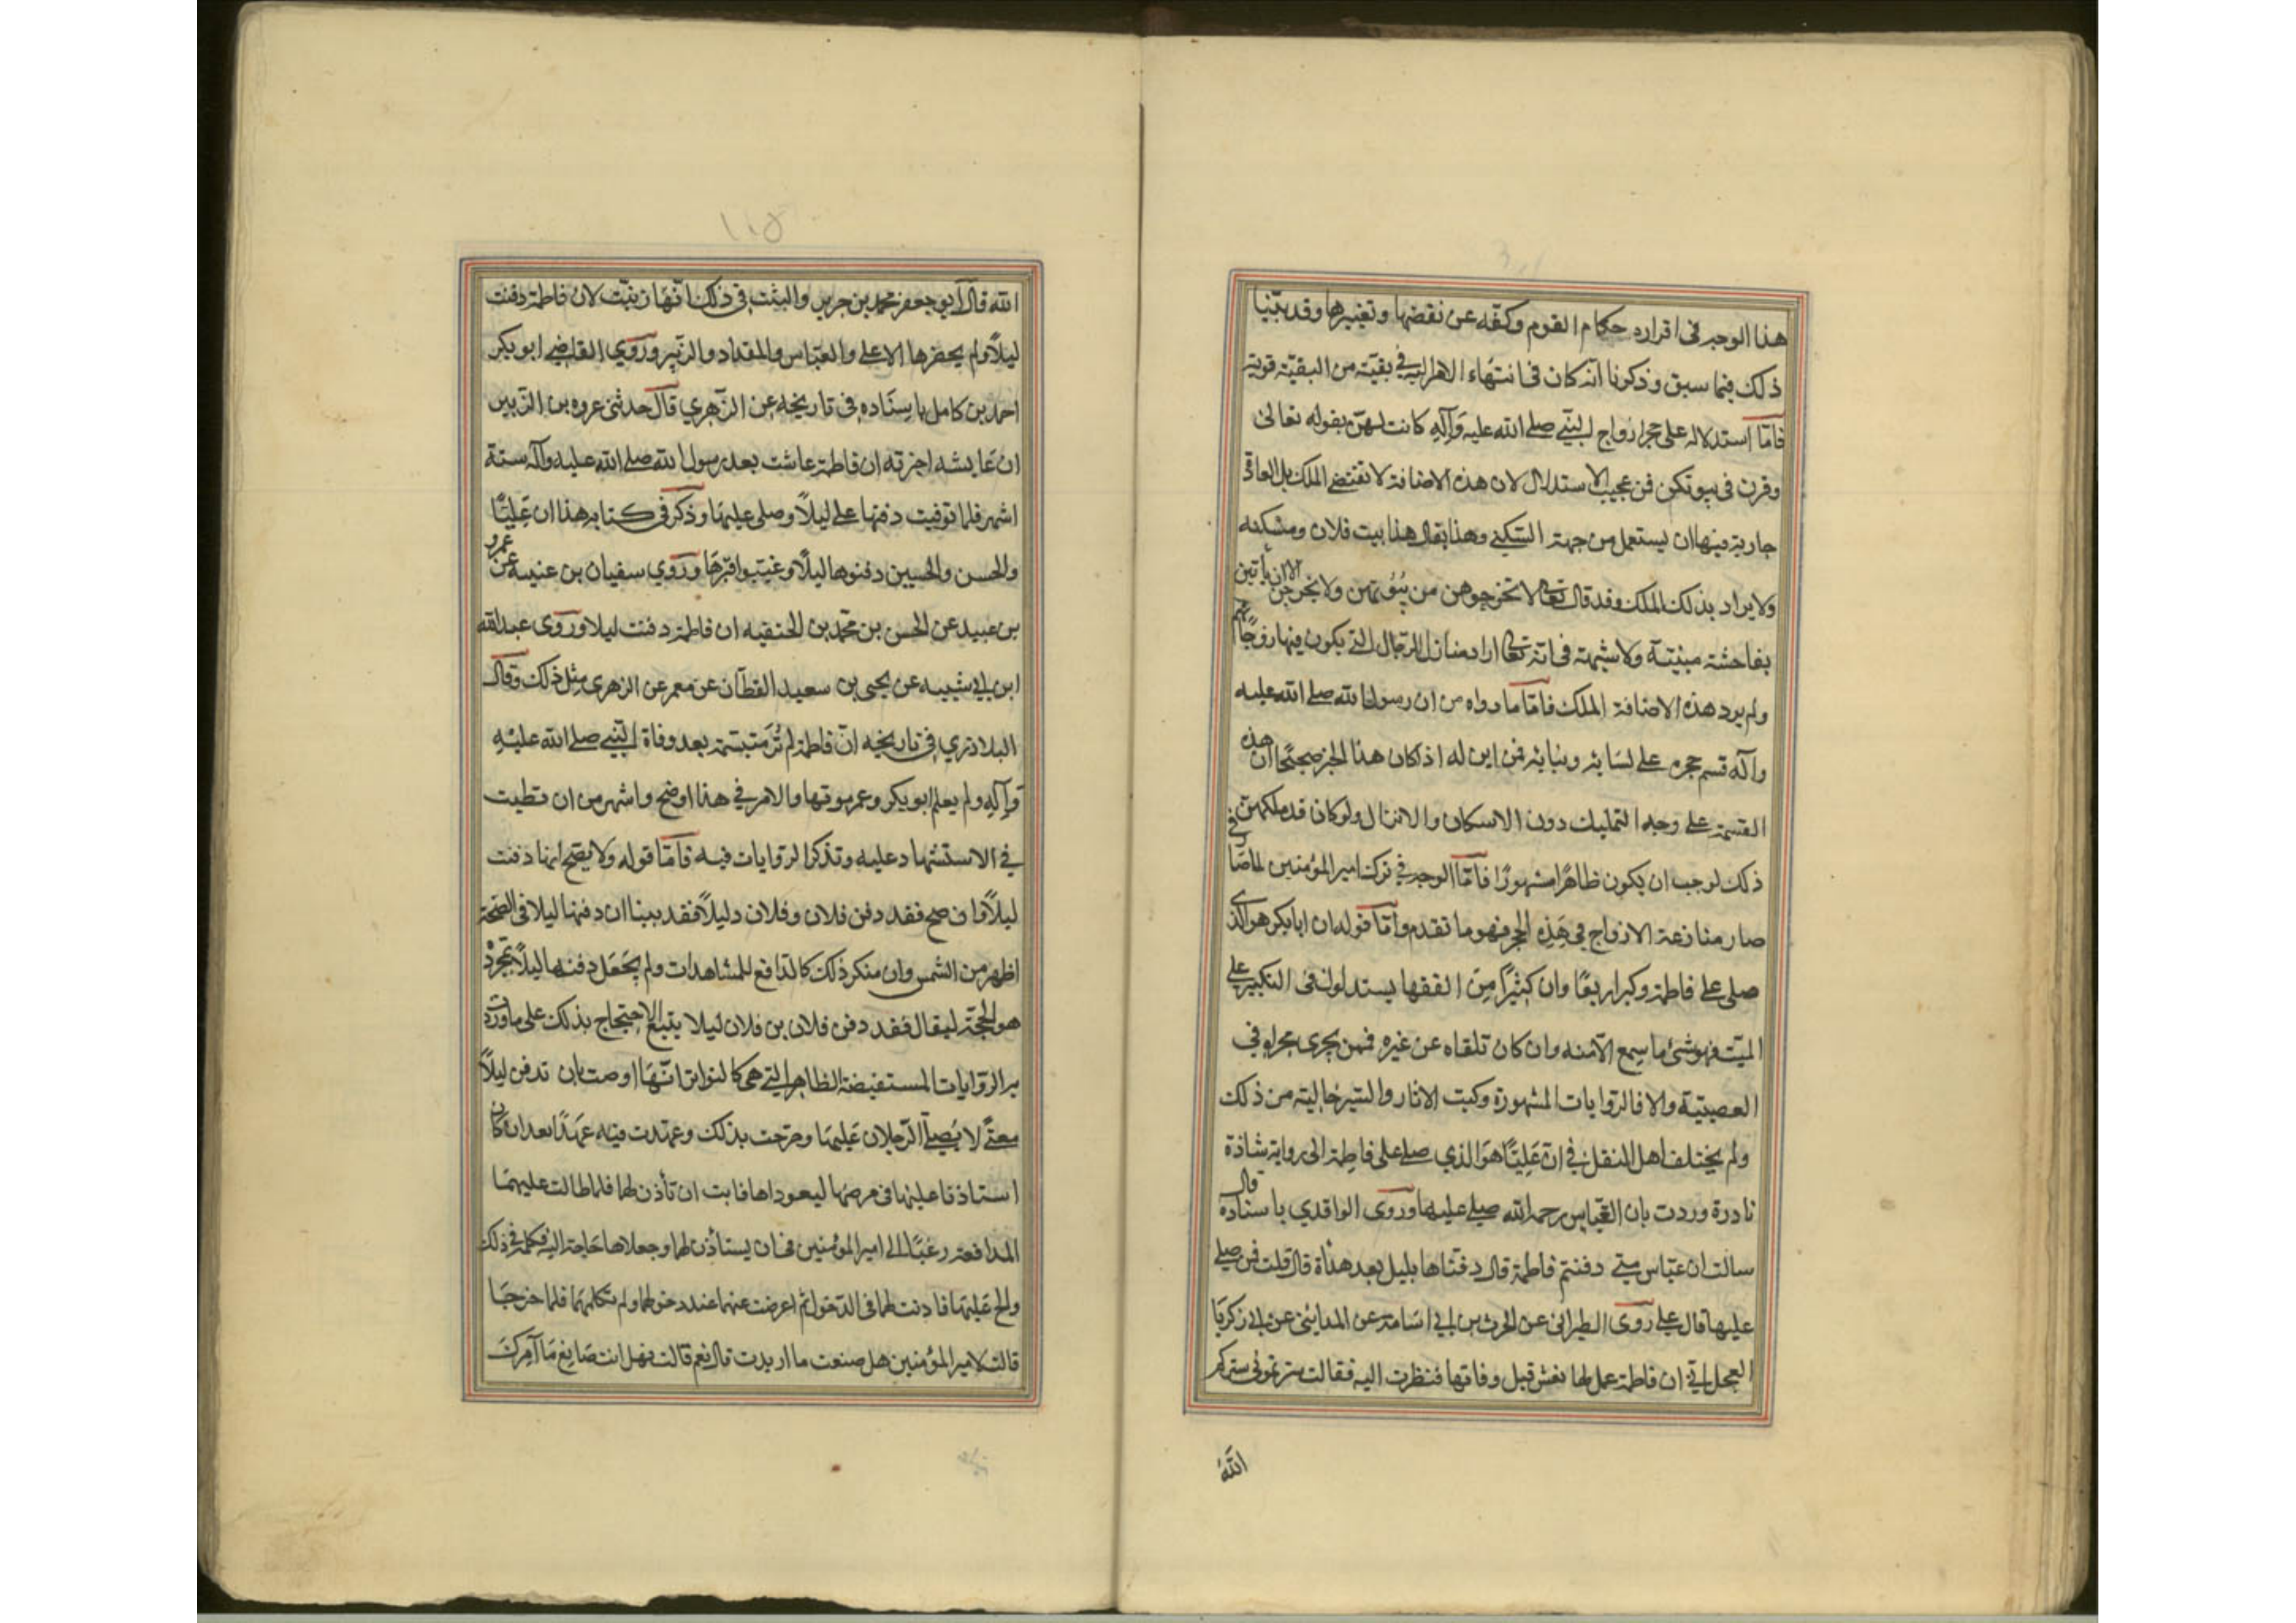 هذا الوجه فى اقراره حكام القوم وكفّه عن نقضها وتغييرها وقد بيّنا
ذلك فيما سبق وذكرنا انه كان فى انتهاء الامر اليه فى بقيّة من البقيّة قوية
فامّا استدلاله على حجر ازواج النبى صلى الله عليه وآله كانت لهنّ بقوله تعالى
وقرن فى بيوتكن فمن عجيب الاستدلال لان هذه الاضافة لا تقتضى الملك بل العادة
جارية فيها ان يستعمل من جهة السّكنى وهذا يقال هذا بيت فلان ومسكنه
ولا يراد بذلك الملك وقد قال تعالى لا تخرجوهن من بُيُوتهن ولا يخرجن الا ان يأتين
بفاحشة مبيّنة ولا شبهة فى انه تعالى اراد منازل الرّجال التى يكون فيها زوجاتهم
ولم يرد هذه الاضافة الملك فامّا ما رواه من ان رسول الله صلى الله عليه
وآله قسم حجره على نسائه وبناته فمن اين له اذا كان هذا الخبر صحيحًا ان هذه
القسمة على وجه التمليك دون الاسكان والانزال ولو كان قد ملكهنّ
ذلك لوجب ان يكون ظاهرًا مشهورًا فامّا الوجه فى ترك امير المؤمنين لمّا صار فى
صار منازعة الازواج فى هذِه الحجر فهو ما تقدم وامّا قوله ان ابا بكر هو الذى
صلى على فاطمة وكبر اربعًا وان كثيرًا مِنَ الفقها يستدلون فى التكبير على
الميّت فهو شئ ما سمع الا منه وان كان تلقاه عن غيره فمن يجرى مجراه فى
العصبيّة والا فالرّوايات المشهورة وكتب الاثار والسّير خالية من ذلك
ولم يختلف اهل النقل فى انّ عَلِيًّا هوَ الذي صلى على فاطِمة الى رواية شاذة
نادرة وردت بان العبّاس رحمه الله صلى عليها ورَوى الواقدي باسناده قال
سالت ابن عبّاس متى دفنتم فاطمة قال دفنّاها بليل بعد هدأة قال قلت فمن صلى
عليها قال على روى الطبرانى عن الحرث بن ابى اسَامة عن المداينى عن ابى زكريّا
العجلانى ان فاطمة عمل لها نعش قبل وفاتها فنظرت اليه فقالت سترتمونى ستركم
الله
١١٥
الله قال ابو جعفر محمد بن جرير والثبت فى ذلك انّها زينب لان فاطمة دفنت
ليلًا ولم يحضرها الا على والعبّاس والمقداد والزّبير ورَوي القاضى ابو بكر
احمد بن كامل باسنَاده فى تاريخه عن الزّهري قال حدثنى عروه بن الزبير
ان عَايشه اخبرته ان فاطمة عاشت بعد رسول الله صلى الله عليه وآله ستة
اشهر فلما توفيت دفنها على ليلًا وصلى عليهَا وذكر فى كتابه هذا ان عَلِيًّا
والحسن والحسين دفنوها ليلًا وغيّبوا قبرهَا ورَوي سفيان بن عنيسه عن عمرو
بن عبيد عن الحسن بن محمّد بن الحنفيه ان فاطمة دفنت ليلا وروى عبد الله
ابن ابى شيبه عن يحيى بن سعيد القطّان عن معمر عن الزهرى مثل ذلك وقال
البلاذري فى تاريخه انّ فاطمة لم تُر متبسّمة بعد وفاة النّبى صلى الله عليْهِ
وَآلِهِ ولم يعلم ابو بكر وعمر موتها والامر فى هذا اوضح واشهر من ان تطيب
فى الاستشهاد عليه وتذكر الرّوايات فيه فامّا قوله ولا يصح انها دفنت
ليلًا فان صح فقد دفن فلان وفلان دليلًا فقد بينا ان دفنها ليلا فى الصّحة
اظهر من الشمس وان منكر ذلك كالدّافع للمشاهدات ولم يجْعَل دفنها ليلًا بمجرّدْ
هو الحجّة ليقال فقد دفن فلان بن فلان ليلا يتبع الاحتجاج بذلك على ما وردت
به الرّوايات المستفيضة الظاهر التى هى كالتواتر انّهَا اوصت بان تدفن ليلًا
معنًى لا يُصلّى الرّجلان عَليهَا وصرّحت بذلك وعهدت فيه عهدًا بعد ان كان
استاذنا عليها فى مرضها ليعوداها فابت ان تأذن لهما فلما طالت عليهمَا
المدافعة رغبَا الى امير المؤمنين فى ان يستأذن لهما وجعلاها حَاجة اليه فكلمها فى ذلك
والح عَليهَا فاذنت لهما فى الدّخول ثم اعرضت عنهما عند دخولهما ولم تكلّمهمَا فلما خرجَا
قالت لامير المؤمنين هل صنعت ما اردت قال نعم قالت فهل انت صَانِع مَا آمرك